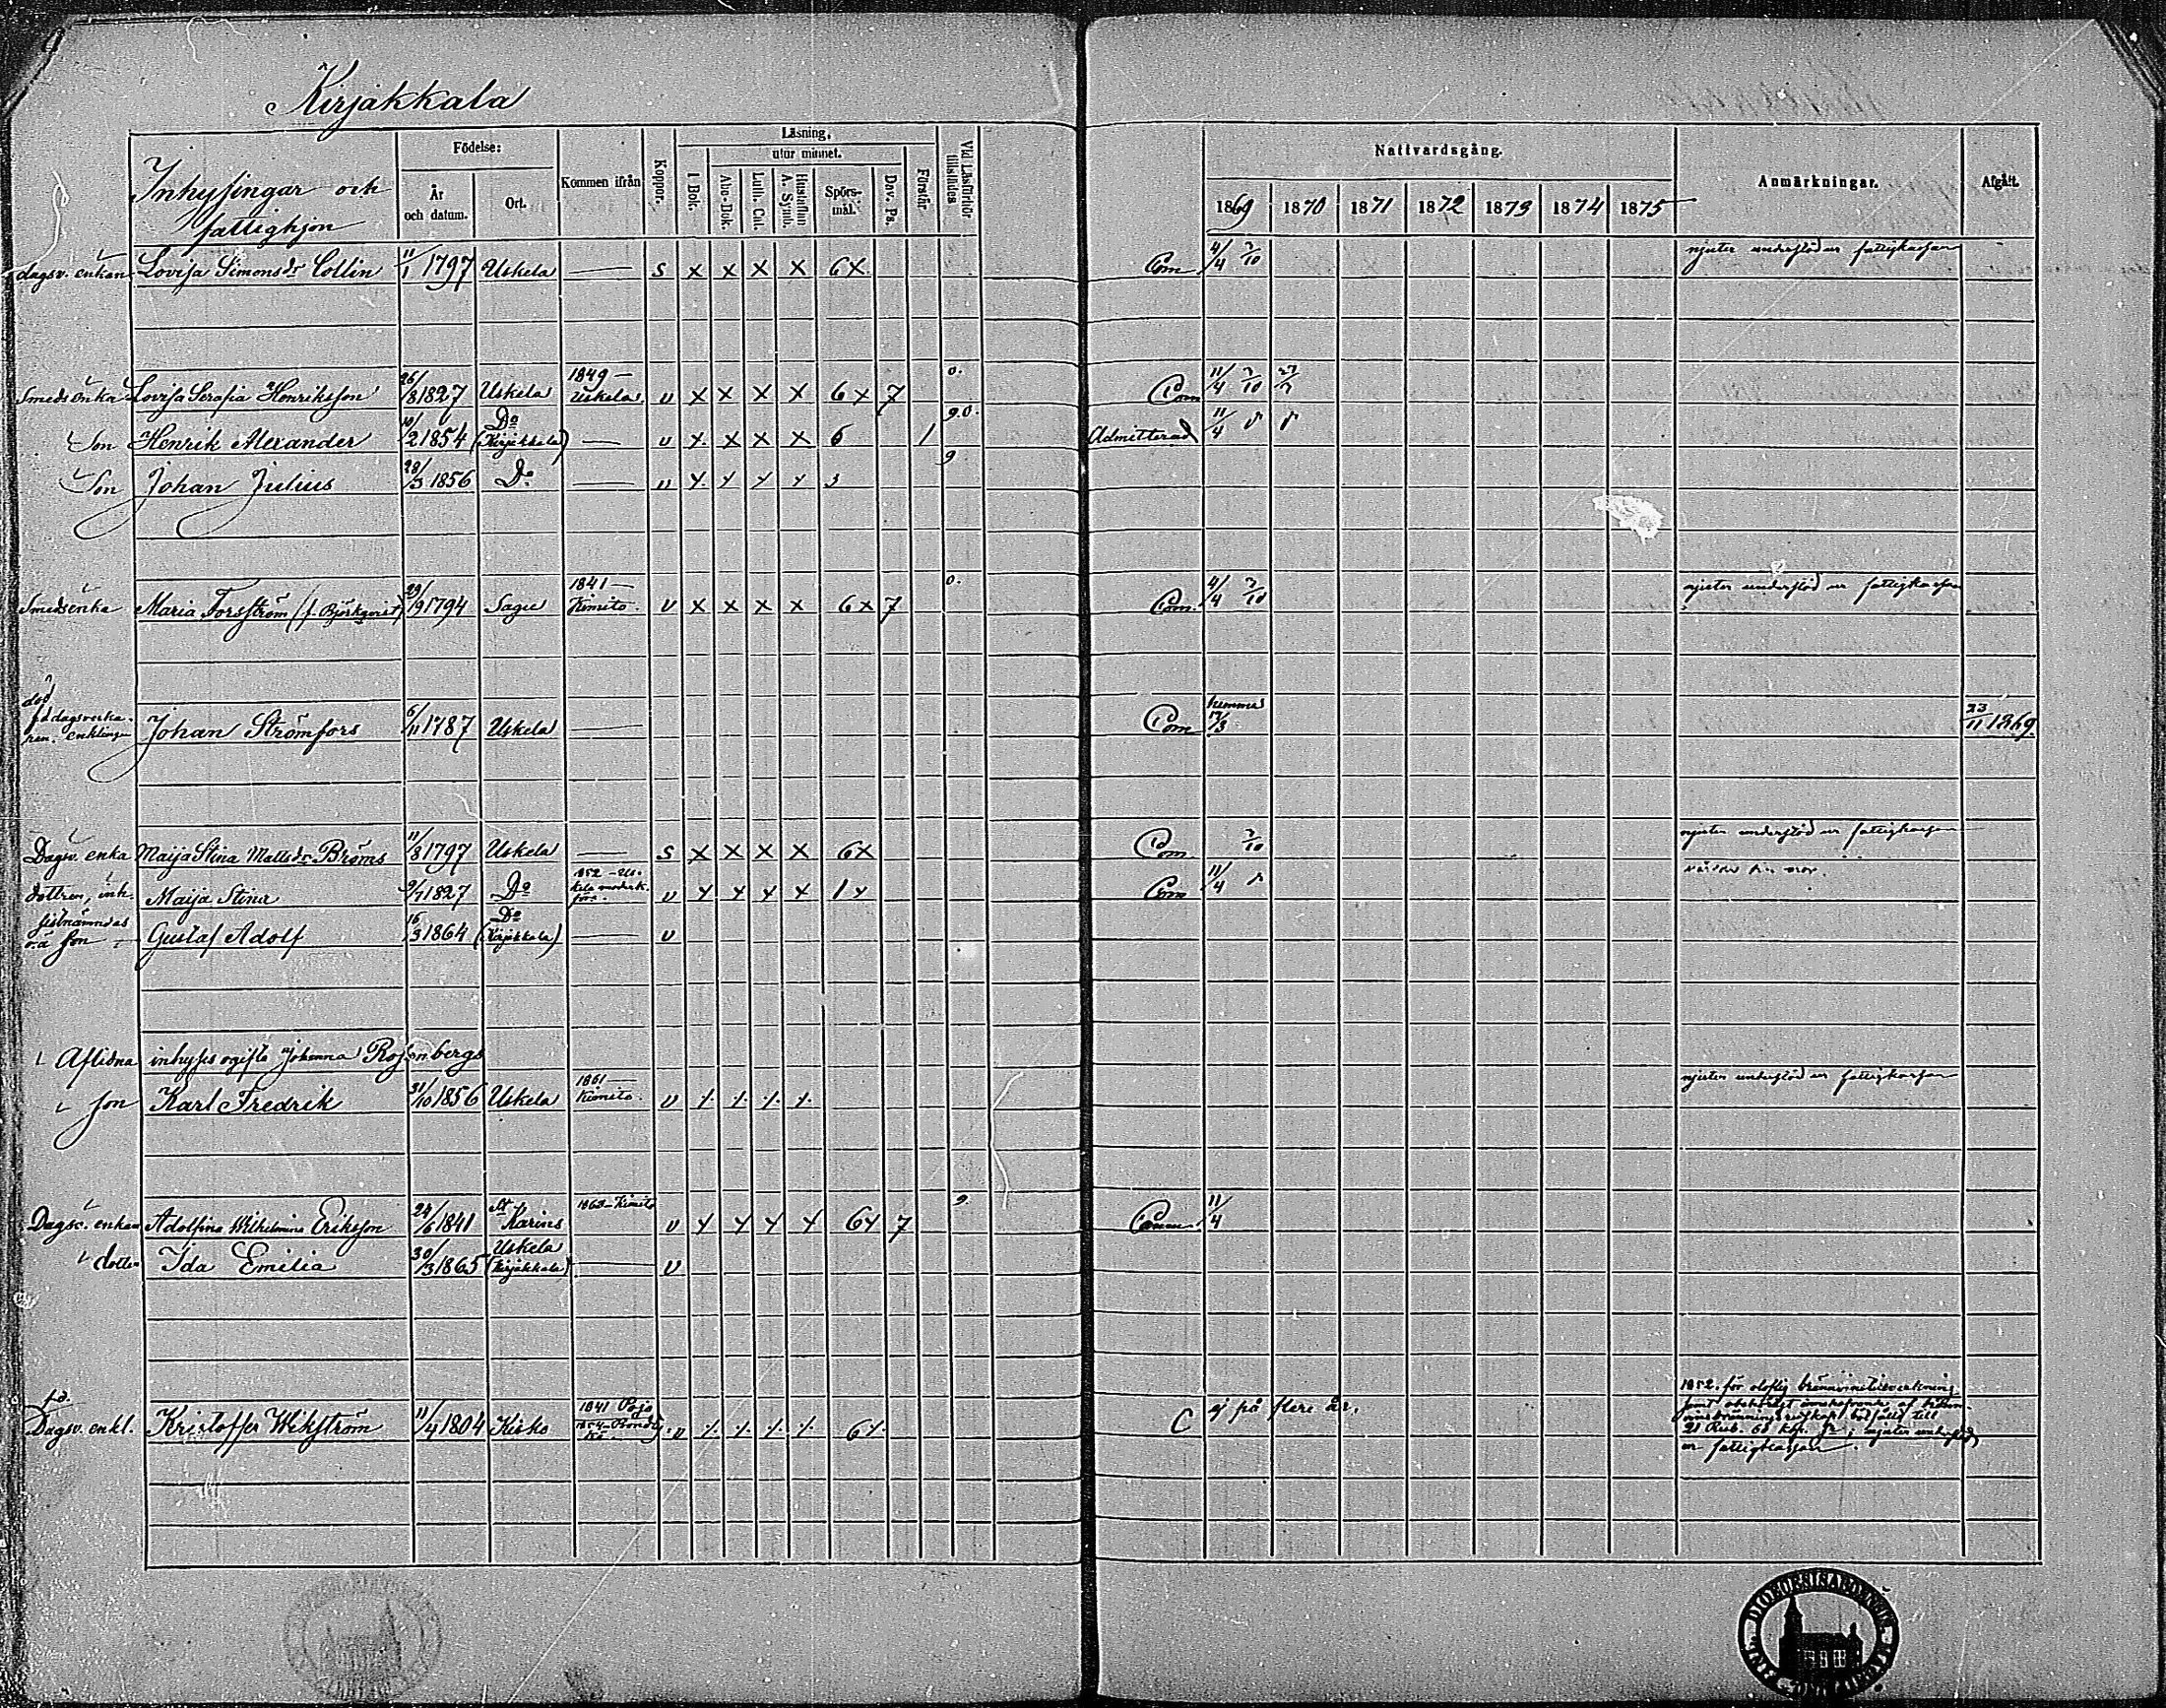 Kirjakkala
Inhysingar och fattighjon
Födelse:
År och datum.
Ort.
Kommen ifrån
Koppor.
Läsning,
utur minnet.
I Bok.
Abc-Bok.
Luth. Cat.
Hustaflan A. Symb.
Spörs-mål.
Dav. Ps.
Förstår.
Vid Läsförhör tillstädes
Nattvardsgång.
1869 1870 1871 1872 1873 1874 1875
Anmärkningar.
Afgått.
dagsv. enkan Lovisa Simonsdr Collin 11/1 1797 Uskela — s x x x x 6x Com 4/4 3/10 njuter understöd ur fattigkassan
Smeds enka Lovisa Serafia Henriksson 26/8 1827 Uskela 1849 — Uskela. v x x x x 6x 7 0. Com 11/4 3/10
Son Henrik Alexander 10/2 1854 Do (Kirjakkala) — v x x x x 6 1 9.0. Admitterad 11/4
Son Johan Julius 28/3 1856 Do — v x x x x 3 9
Smedsenka Maria Forsström (f. Björkqvist) 29/9 1794 Sagu 1841 — Kimito. v x x x x 6x 7 0. Com. 4/4 3/10 njuter understöd ur fattigkassan
död fd dagsverka-ren. enklingen Johan Strömfors 6/11 1787 Uskela — Com hemma 17/3 23/11 1869
Dagsv. enka Maija Stina Mattsdr Bröms 11/8 1797 Uskela — s x x x x 6x Com 3/10 njuter understöd ur fattigkassan
dottren, inh. Maija Stina 9/7 1827 Do 1852 — Us-kela v x x x x 1x Com 11/4 vårdar sin mor.
sistnämndas o.ä son Gustaf Adolf 16/3 1864 Do (Kirjakkala) — v
Aflidna inhyses ogifta Johanna Rosenbergs
son Karl Fredrik 31/10 1856 Uskela 1861 — Kimito. v njuter understöd ur fattigkassan
Dagsv. enkan Adolfina Wilhelmina Eriksson 24/6 1841 St Karins 1863 — Kimito v x x x x 6x 7 9. Comm. 11/4
dotter Ida Emilia 30/3 1865 Uskela (Kirjakkala) — v
fd. Dagsv. enkl. Kristoffer Wikström 11/4 1804 Kisko 1841 Pojo v 6 C ej på flere år.
1852. för oloflig bränvinstillverkning
21 Rub. 60 kop. Sr; njuter understöd
ur fattigkassan.